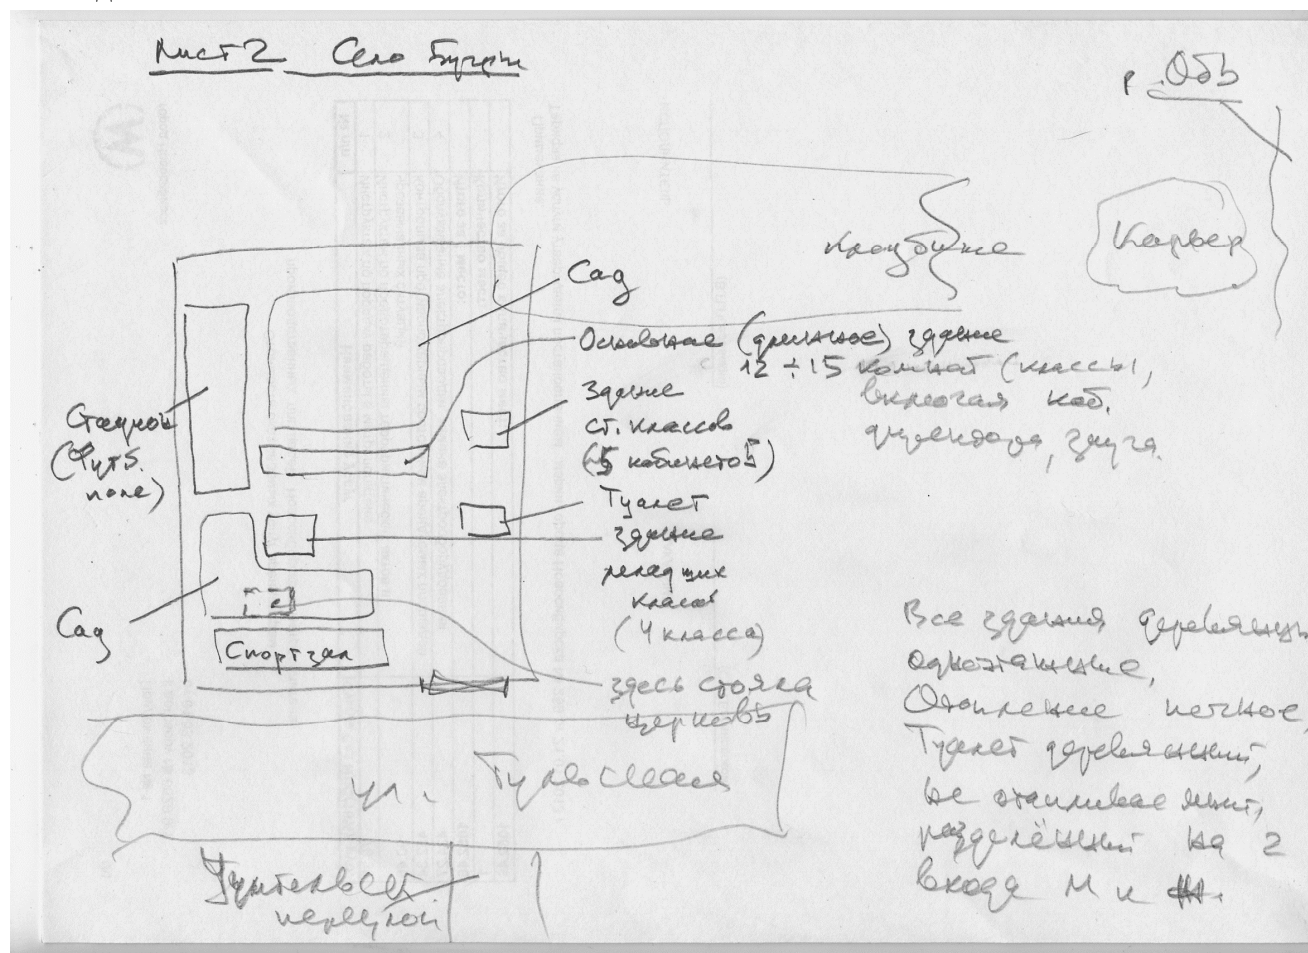 Лист 2 Село Бугры
р. Обь
Кладбище
Карьер
Сад
Основное (длинное) здание
12 ÷ 15 комнат (классы,
включая каб.
директора, завуча.
Здание
ст. классов
(5 кабинетов)
Стадион
(футб.
поле)
Туалет
здание
младших
классов
(4 класса)
Сад
Спортзал
здесь стояла
церковь
ул. Тульская
Учительский
переулок
Все здания деревянные
одноэтажные,
Отопление печное,
Туалет деревянный,
не отапливаемый,
разделённый на 2
входа М и Ж.